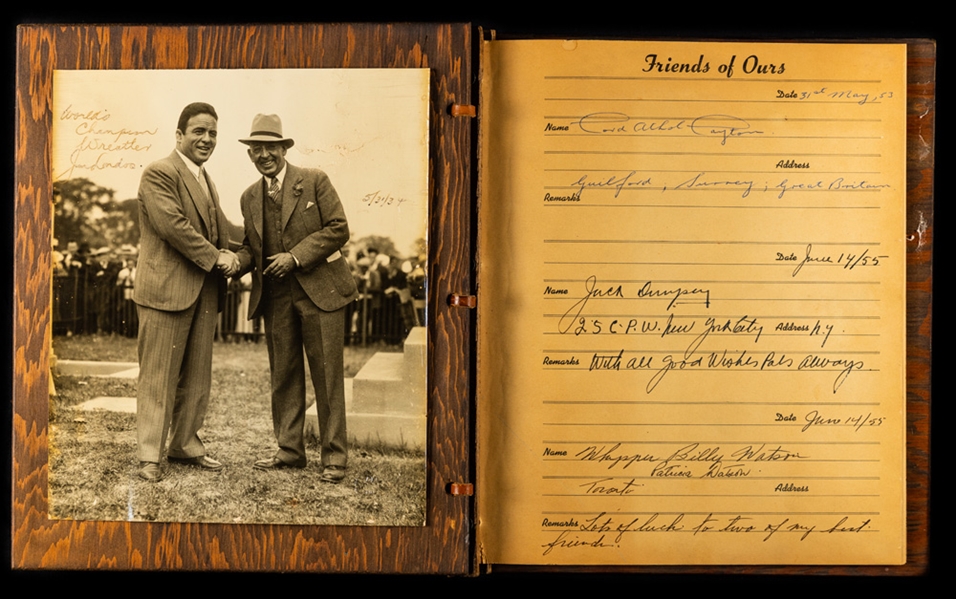 World's
Champion
Wrestler
Jim Londos.
5/31/34
Friends of Ours
Date 31st May, 53
Name Lord Athol Layton
Address
Guilford, Surrey; Great Britain
Remarks
Date June 14/55
Name Jack Dempsey
25 C.P.W. New York City Address N.Y.
Remarks With all good Wishes Pals always.
Date June 14/55
Name Whipper Billy Watson
Patricia Watson.
Toronto Address
Remarks Lots of luck to two of my best
friends.